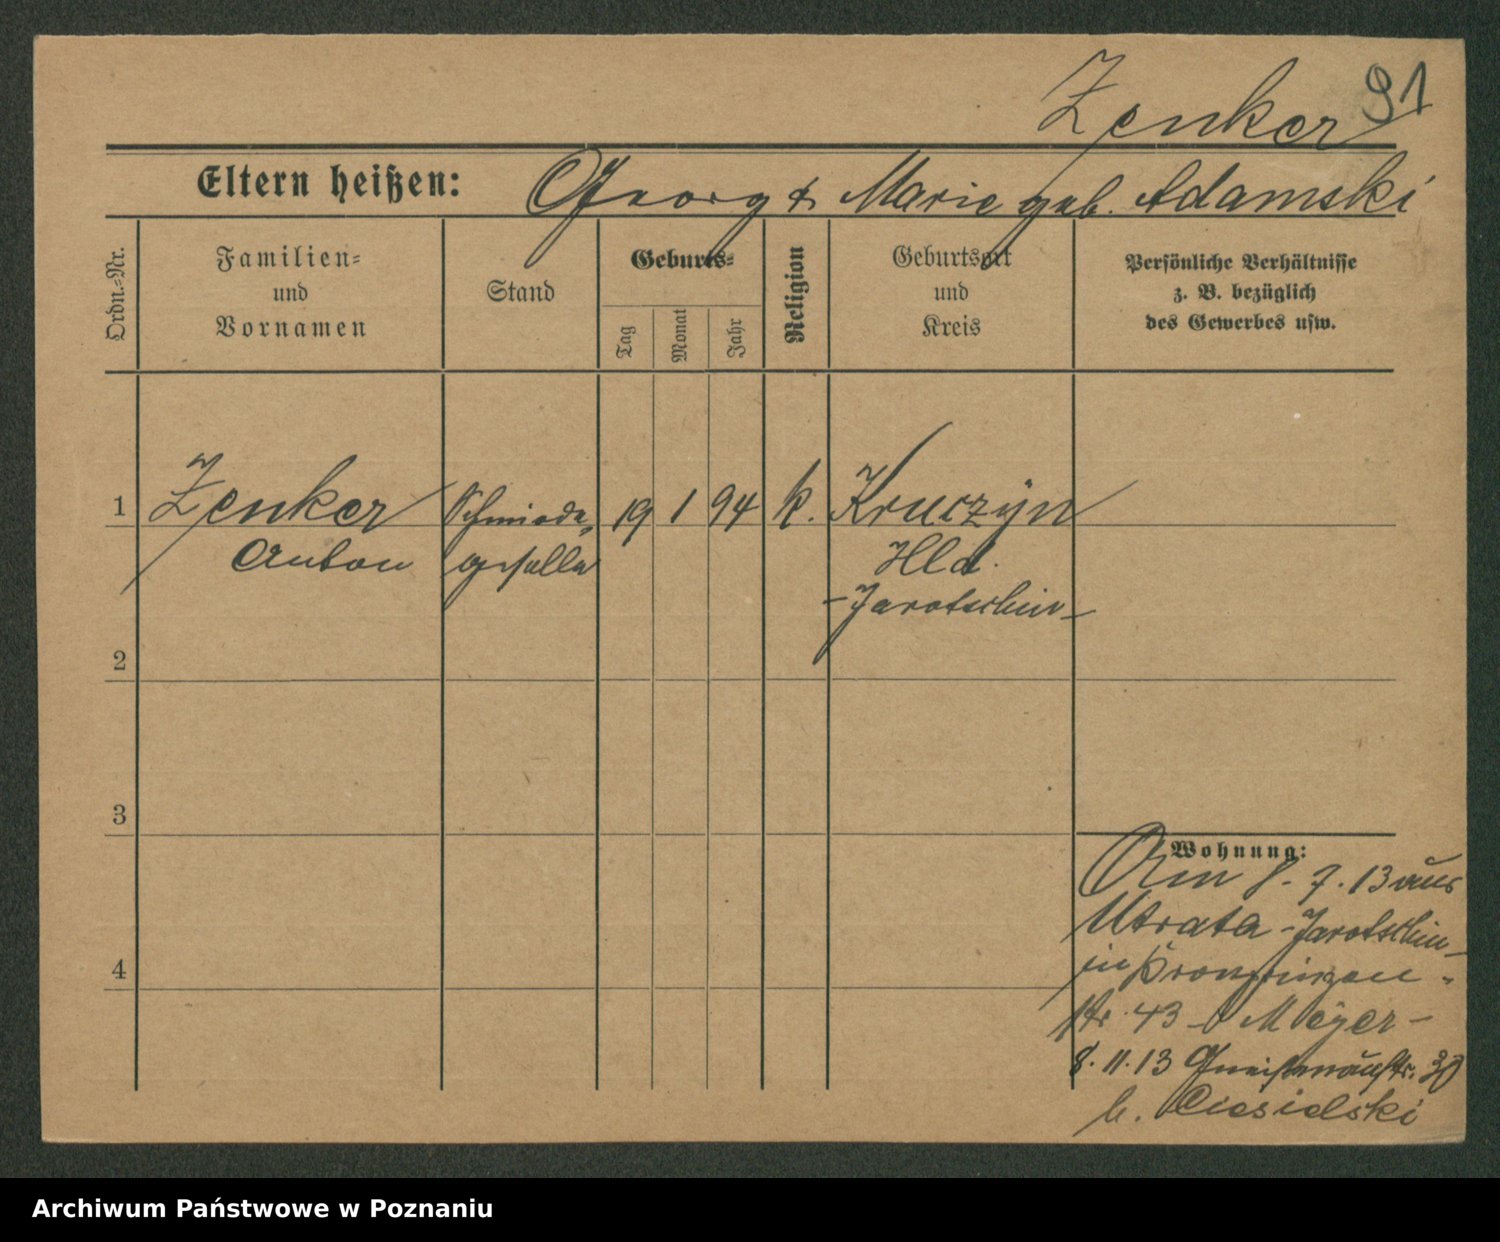 Zenker 91
Eltern heißen: Georg & Marie geb. Adamski
Ordn.-Nr.
Familien-
und
Vornamen
Stand
Geburts-
Tag
Monat
Jahr
Religion
Geburtsort
und
Kreis
Persönliche Verhältnisse
z. B. bezüglich
des Gewerbes usw.
1 Zenker Schmiede- 19 1 94 k. Kruczyn
Anton geselle Hld.
-Jarotschin-
2
3
4
Wohnung:
Am 8.7.13 aus
Utrata -Jarotschin-
in Kronprinzen-
str. 43 b Meyer-
8.11.13 Gneisenaustr. 30
b. Ciesielski
Archiwum Państwowe w Poznaniu